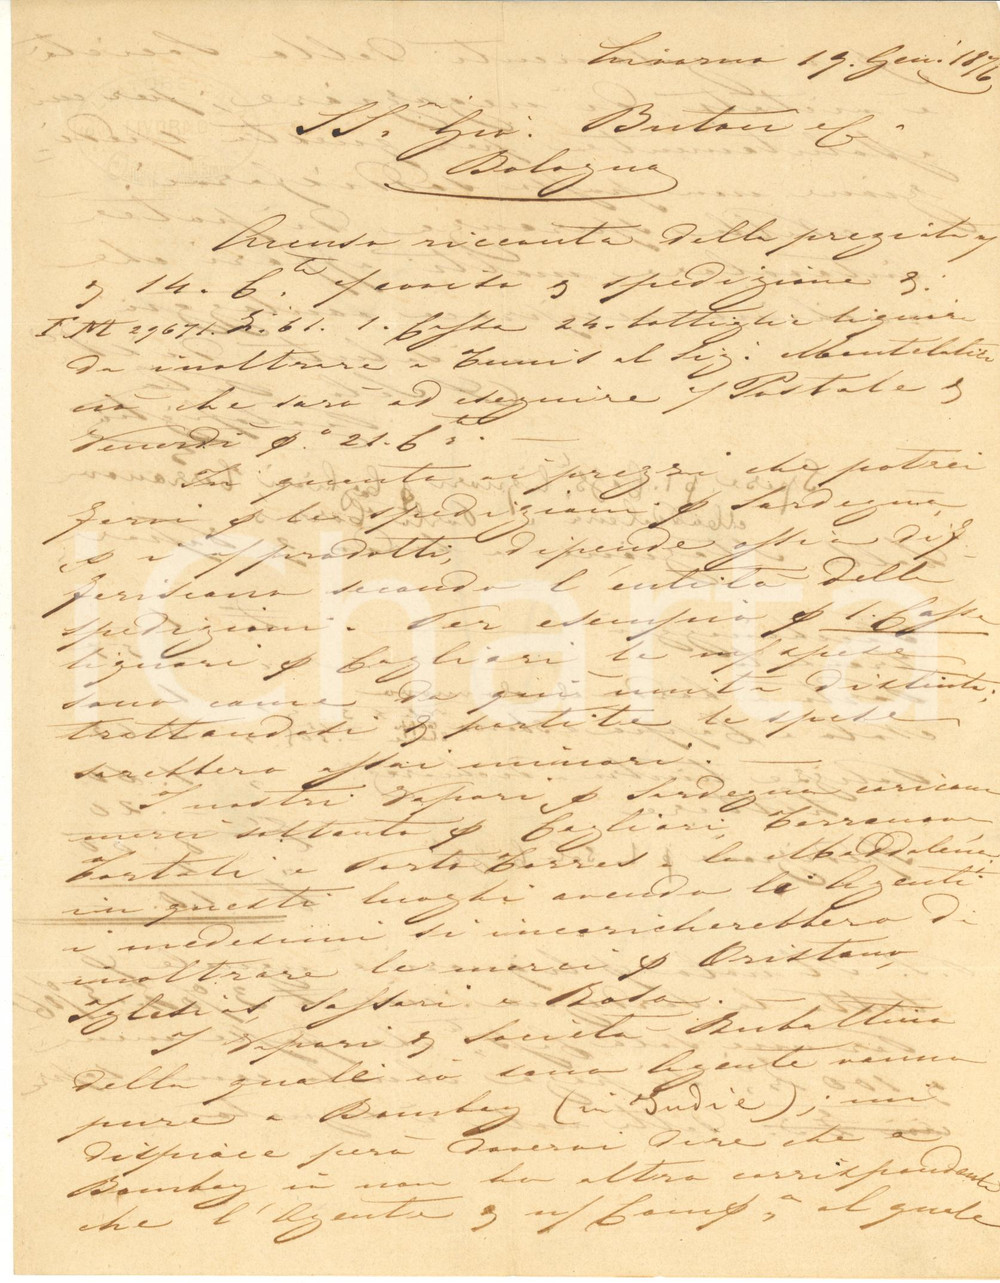 Livorno 19. Gen. 1876
SS. Gio. Buton e C.
Bologna
Accuso riccevuta della pregiata
14. C.te spedizione
I M 29671. 61. 1. Cassa 24. bottiglie liquori
da inoltrare a Tunis al Sig.
ciò che sarà ad eseguire Postale
Venerdì p.o 21. C.te —
In quanto ai prezzi che potrei
farvi p le spedizioni p Sardegna,
dipende assai
feriscono secondo l'entità delle
spedizioni. Per esempio p 1. Cassa
liquori p Cagliari le spese
sono come da qui unita distinta,
trattandosi di partite le spese
sarebbero assai minori. —
I nostri Vapori p Sardegna caricano
merci soltanto p Cagliari, Terranova
Tortolì e Porto Torres e la Maddalena
in questi luoghi avendo li Agenti
i medesimi si incaricherebbero di
inoltrare le merci p Oristano,
Iglesias, Sassari e Bosa.
I Vapori Società Rubattino
della quale io sono Agente vanno
pure a Bombay (in Indie); mi
dispiace però dovervi dire che a
Bombay io non ho altro corrispondente
che l'Agente Comp.a al quale
iCharta